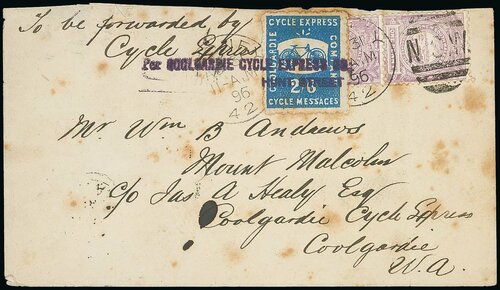 To be forwarded by
Cycle Express
Per COOLGARDIE CYCLE EXPRESS CO.
CYCLE EXPRESS
COOLGARDIE
COMPANY
2/6
CYCLE MESSAGES
11 A.M
96
42
31
A.M
96
42
N.S.W
Mr Wm B Andrews
Mount Malcolm
C/o Jas A Healy Esq
Coolgardie Cycle Express
Coolgardie
W.A.